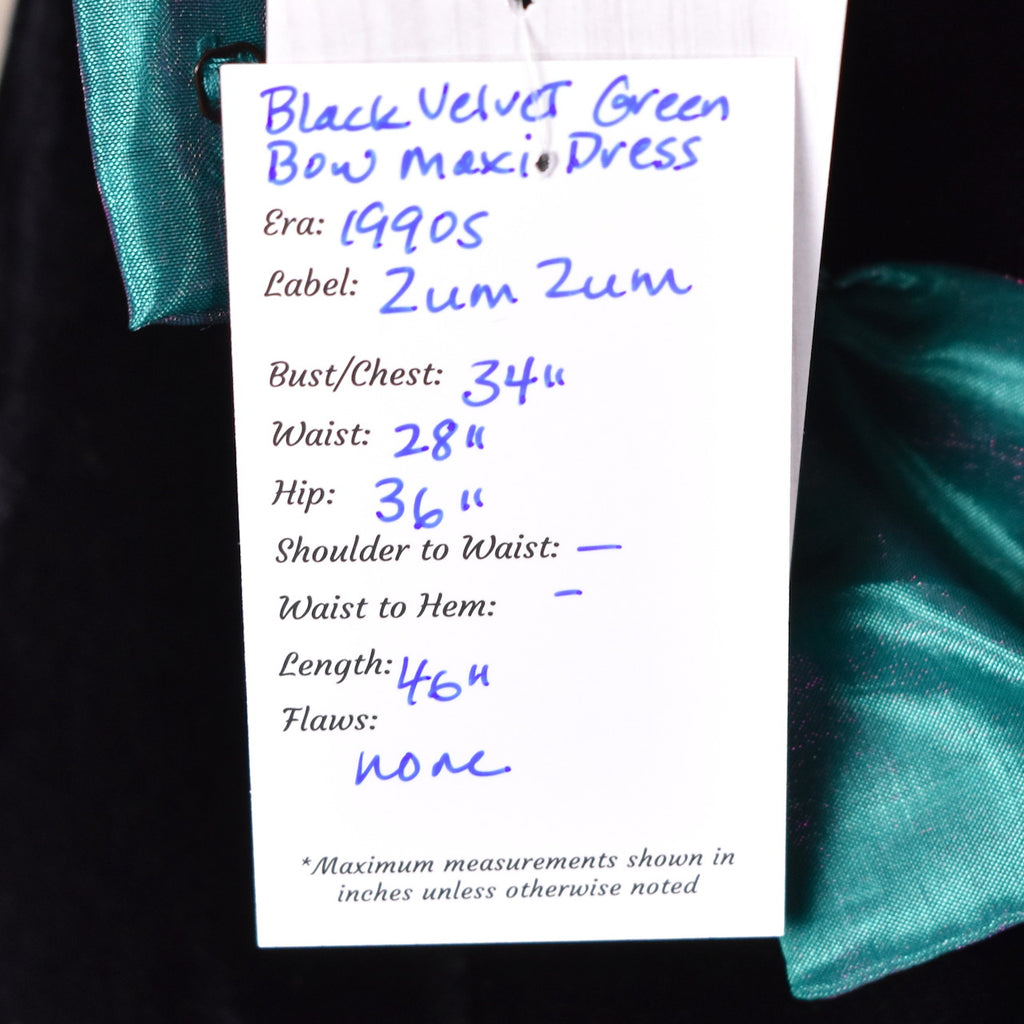 Black Velvet Green
Bow Maxi Dress
Era: 1990s
Label: Zum Zum
Bust/Chest: 34"
Waist: 28"
Hip: 36"
Shoulder to Waist: —
Waist to Hem: -
Length: 46"
Flaws:
none
*Maximum measurements shown in
inches unless otherwise noted